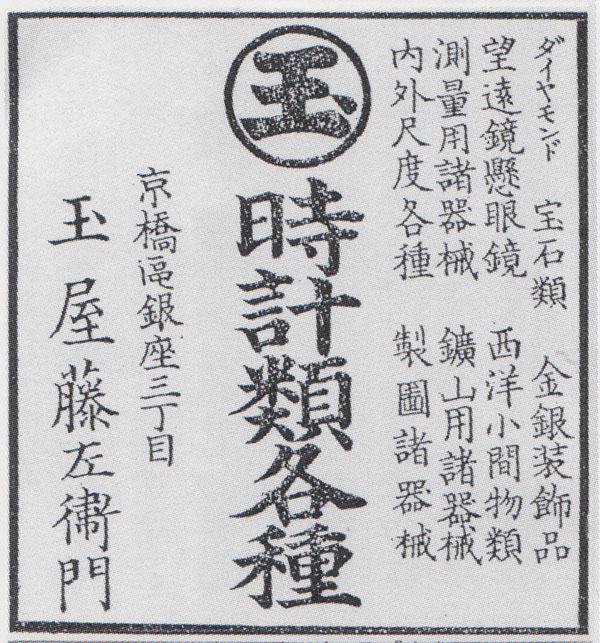 ダイヤモンド 宝石類 金銀装飾品
望遠鏡懸眼鏡 西洋小間物類
測量用諸器械 鑛山用諸器械
内外尺度各種 製圖諸器械
玉
時計類各種
京橋區銀座三丁目
玉屋藤左衞門